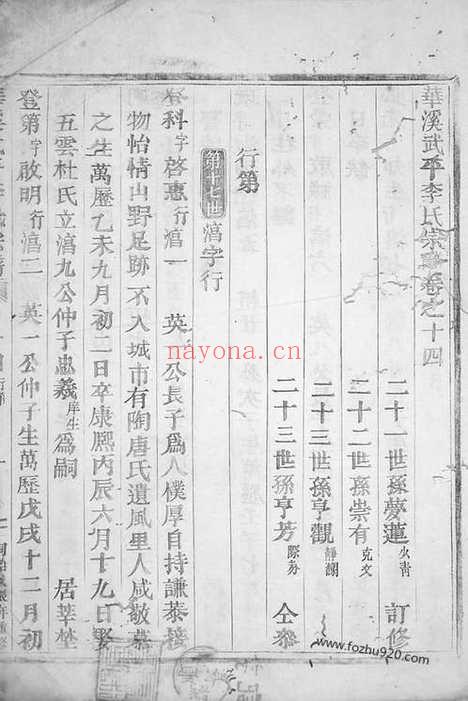 華溪武平李氏宗譜卷之十四
二十一世孫夢蓮 火青 訂修
二十二世孫崇有 克文
二十三世孫亨觀 靜瀾
二十三世孫亨芳 仝叅
行第
第十七世 濇字行
登科 字啓惠 行濇一 英一公長子爲人樸厚自持謙恭接
物怡情山野足跡不入城市有陶唐氏遺風里人咸敬慕
之生萬歷乙未九月初二日卒康熙丙辰六月十九日娶
五雲杜氏立濇九公仲子忠義 庠生 爲嗣 居莘塋
登第 字啟明 行濇二 英一公仲子生萬歷戊戌十二月初
nayona.ca
www.fozhu920.com